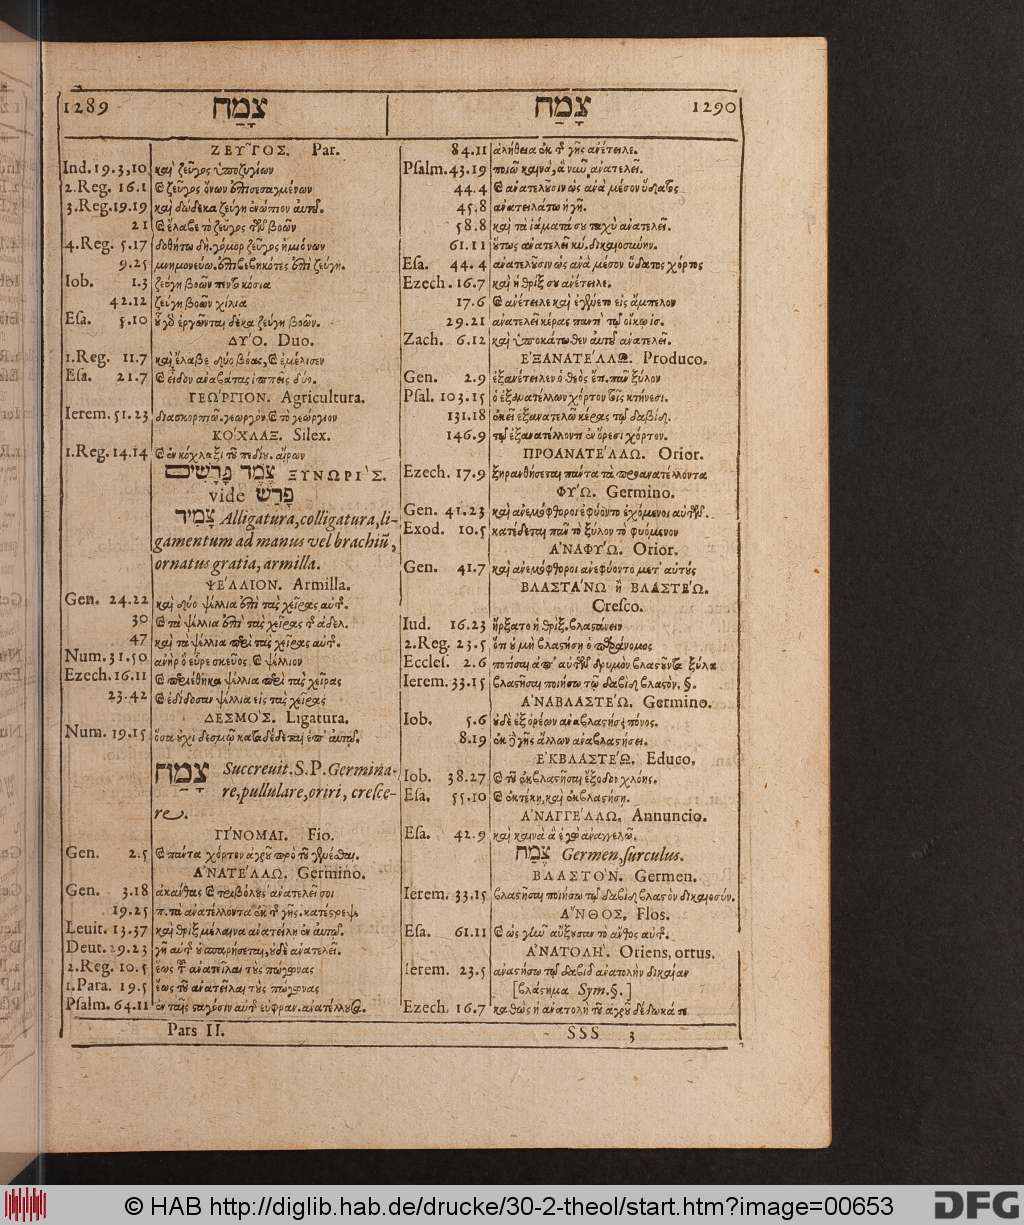 1289 צָמַח
ΖΕΥ͂ΓΟΣ. Par.
Iud. 19.3,10 καὶ ζεῦγος ὑποζυγίων
2.Reg. 16.1 καὶ ζεῦγος ὄνων ἐπισεσαγμένων
3.Reg.19.19 καὶ δώδεκα ζεύγη ἐνώπιον αὐτοῦ.
21 καὶ ἔλαβε τὸ ζεῦγος τῶν βοῶν
4.Reg. 5.17 δοθήτω δὴ. γόμορ ζεῦγος ἡμιόνων
9.25 μνημονεύω. ἐπιβεβηκότες ἐπὶ ζεύγη.
Iob. 1.3 ζεύγη βοῶν πεντακόσια
42.12 ζεύγη βοῶν χίλια
Esa. 5.10 οὗ γὸ ἐργῶνται δέκα ζεύγη βοῶν.
ΔΎΟ. Duo.
1.Reg. 11.7 καὶ ἔλαβε δύο βόας, καὶ ἐμέλισεν
Esa. 21.7 καὶ εἶδον ἀναβάτας ἱππεῖς δύο.
ΓΕΏΡΓΙΟΝ. Agricultura.
Ierem. 51.23 διασκορπιῶ. γεωργὸν. καὶ τὸ γεώργιον
ΚΌΧΛΑΞ. Silex.
1.Reg. 14.14 καὶ ἐν κόχλαξι τοῦ πεδίου.
צֶמֶד פָּרָשִׁים ΞΥΝΩΡΊΣ.
vide פָּרָשׁ
צָמִיד Alligatura, colligatura, li-
gamentum ad manus vel brachiũ,
ornatus gratia, armilla.
ΨΈΛΛΙΟΝ. Armilla.
Gen. 24.22 καὶ δύο ψέλλια ἐπὶ τὰς χεῖρας αὐτ͂.
30 καὶ τὰ ψέλλια ἐπὶ τὰς χεῖρας τ͂ ἀδελ.
47 καὶ τὰ ψέλλια περὶ τὰς χεῖρας αὐτ͂.
Num. 31.50 ἀνὴρ ὃ εὗρε σκεῦος. καὶ ψέλλιον
Ezech. 16.11 καὶ περιέθηκα ψέλλια περὶ τὰς χεῖρας
23.42 καὶ ἐδίδοσαν ψέλλια εἰς τὰς χεῖρας
ΔΕΣΜΌΣ. Ligatura.
Num. 19.15 ὅσα οὐχὶ δεσμῷ καταδέδεται ἐπ' αὐτῷ.
צָמַח Succreuit. S.P. Germina-
re, pullulare, oriri, cresce-
re.
ΓΊΝΟΜΑΙ. Fio.
Gen. 2.5 καὶ πάντα χόρτον ἀγροῦ πρὸ τοῦ γενέσθαι.
Α'ΝΑΤΈΛΛΩ. Germino.
Gen. 3.18 ἀκάνθας καὶ τριβόλους ἀνατελεῖ σοι
19.25 π. τὰ ἀνατέλλοντα ἐκ τ͂ γῆς. κατέστρεψ.
Leuit. 13.37 καὶ θρὶξ μέλαινα ἀνατείλη ἐν αὐτῷ.
Deut. 29.23 γῆ αὐτ͂ οὐ σπαρήσεται, οὐδὲ ἀνατελεῖ.
2.Reg. 10.5 ἕως τ͂ ἀνατεῖλαι τοὺς πώγωνας
1.Para. 19.5 ἕως τοῦ ἀνατεῖλαι τοὺς πώγωνας
Psalm. 64.11 ἐν ταῖς σταγόσιν αὐτ͂ εὐφραν. ἀνατέλλουσα.
Pars II.
צָמַח 1290
84.11 ἀλήθεια ἐκ τ͂ γῆς ἀνέτειλε.
Psalm. 43.19 ποιῶ καινὰ, ἃ νῦν ἀνατελεῖ.
44.4 καὶ ἀνατελοῦσιν ὡς ἀνὰ μέσον ὕδατος
45.8 ἀνατειλάτω ἡ γῆ.
58.8 καὶ τὰ ἰάματά σου ταχὺ ἀνατελεῖ.
61.11 οὕτως ἀνατελεῖ κύ. δικαιοσύνην.
Esa. 44.4 ἀνατελοῦσιν ὡς ἀνὰ μέσον ὕδατος χόρτος
Ezech. 16.7 καὶ ἡ θρίξ σου ἀνέτειλε.
17.6 καὶ ἀνέτειλε καὶ ἐγένετο εἰς ἄμπελον
29.21 ἀνατελεῖ κέρας παντὶ τῷ οἴκῳ ἰσ.
Zach. 6.12 καὶ ὑποκάτωθεν αὐτοῦ ἀνατελεῖ.
Ε'ΞΑΝΑΤΈΛΛΩ. Produco.
Gen. 2.9 ἐξανέτειλεν ὁ θεὸς ἔτι. πᾶν ξύλον
Psal. 103.15 ὁ ἐξανατέλλων χόρτον τοῖς κτήνεσι.
131.18 ἐκεῖ ἐξανατελῶ κέρας τῷ δαβίδ.
146.9 τῷ ἐξανατέλλοντι ἐν ὄρεσι χόρτον.
ΠΡΟΑΝΑΤΈΛΛΩ. Orior.
Ezech. 17.9 ξηρανθήσεται πάντα τὰ προανατέλλοντα
ΦΎΩ. Germino.
Gen. 41.23 καὶ ἀνεμόφθοροι ἐφύοντο ἐχόμενοι αὐτῶν.
Exod. 10.5 κατέδεται πᾶν τὸ ξύλον τὸ φυόμενον
Α'ΝΑΦΎΩ. Orior.
Gen. 41.7 καὶ ἀνεμόφθοροι ἀνεφύοντο μετ' αὐτοὺς
ΒΛΑΣΤΆΝΩ ἢ ΒΛΑΣΤΈΩ.
Cresco.
Iud. 16.23 ἤρξατο ἡ θρὶξ. βλαστάνειν
2.Reg. 23.5 ὅτι οὐ μὴ βλαστήσῃ ὁ παράνομος
Eccles. 2.6 ποτίσαι ἀπ' αὐτῶν δρυμὸν βλαστῶντα ξύλα
Ierem. 33.15 βλαστῆσαι ποιήσω τῷ δαβὶδ βλαστὸν. §.
Α'ΝΑΒΛΑΣΤΈΩ. Germino.
Iob. 5.6 οὐδὲ ἐξ ὀρέων ἀναβλαστήσει πόνος.
8.19 ἐκ δ γῆς ἄλλον ἀναβλαστήσει.
Ε'ΚΒΛΑΣΤΈΩ. Educo.
Iob. 38.27 καὶ τοῦ ἐκβλαστῆσαι ἔξοδον χλόης.
Esa. 55.10 καὶ ἐκτέκῃ, καὶ ἐκβλαστήσῃ.
Α'ΝΑΓΓΈΛΛΩ. Annuncio.
Esa. 42.9 καὶ καινὰ ἃ ἐγὼ ἀναγγελῶ.
צֶמַח Germen, surculus.
ΒΛΑΣΤΌΝ. Germen.
Ierem. 33.15 βλαστῆσαι ποιήσω τῷ δαβὶδ βλαστὸν δικαιοσύν.
Α῎ΝΘΟΣ. Flos.
Esa. 61.11 καὶ ὡς γῆν αὔξουσαν τὸ ἄνθος αὐτ͂.
Α'ΝΑΤΟΛΉ. Oriens, ortus.
Ierem. 23.5 ἀναστήσω τῷ δαβὶδ ἀνατολὴν δικαίαν
[βλάστημα Sym. §.]
Ezech. 16.7 καθὼς ἡ ἀνατολὴ τοῦ ἀγροῦ δέδωκά σε
SSS 3
© HAB http://diglib.hab.de/drucke/30-2-theol/start.htm?image=00653
DFG